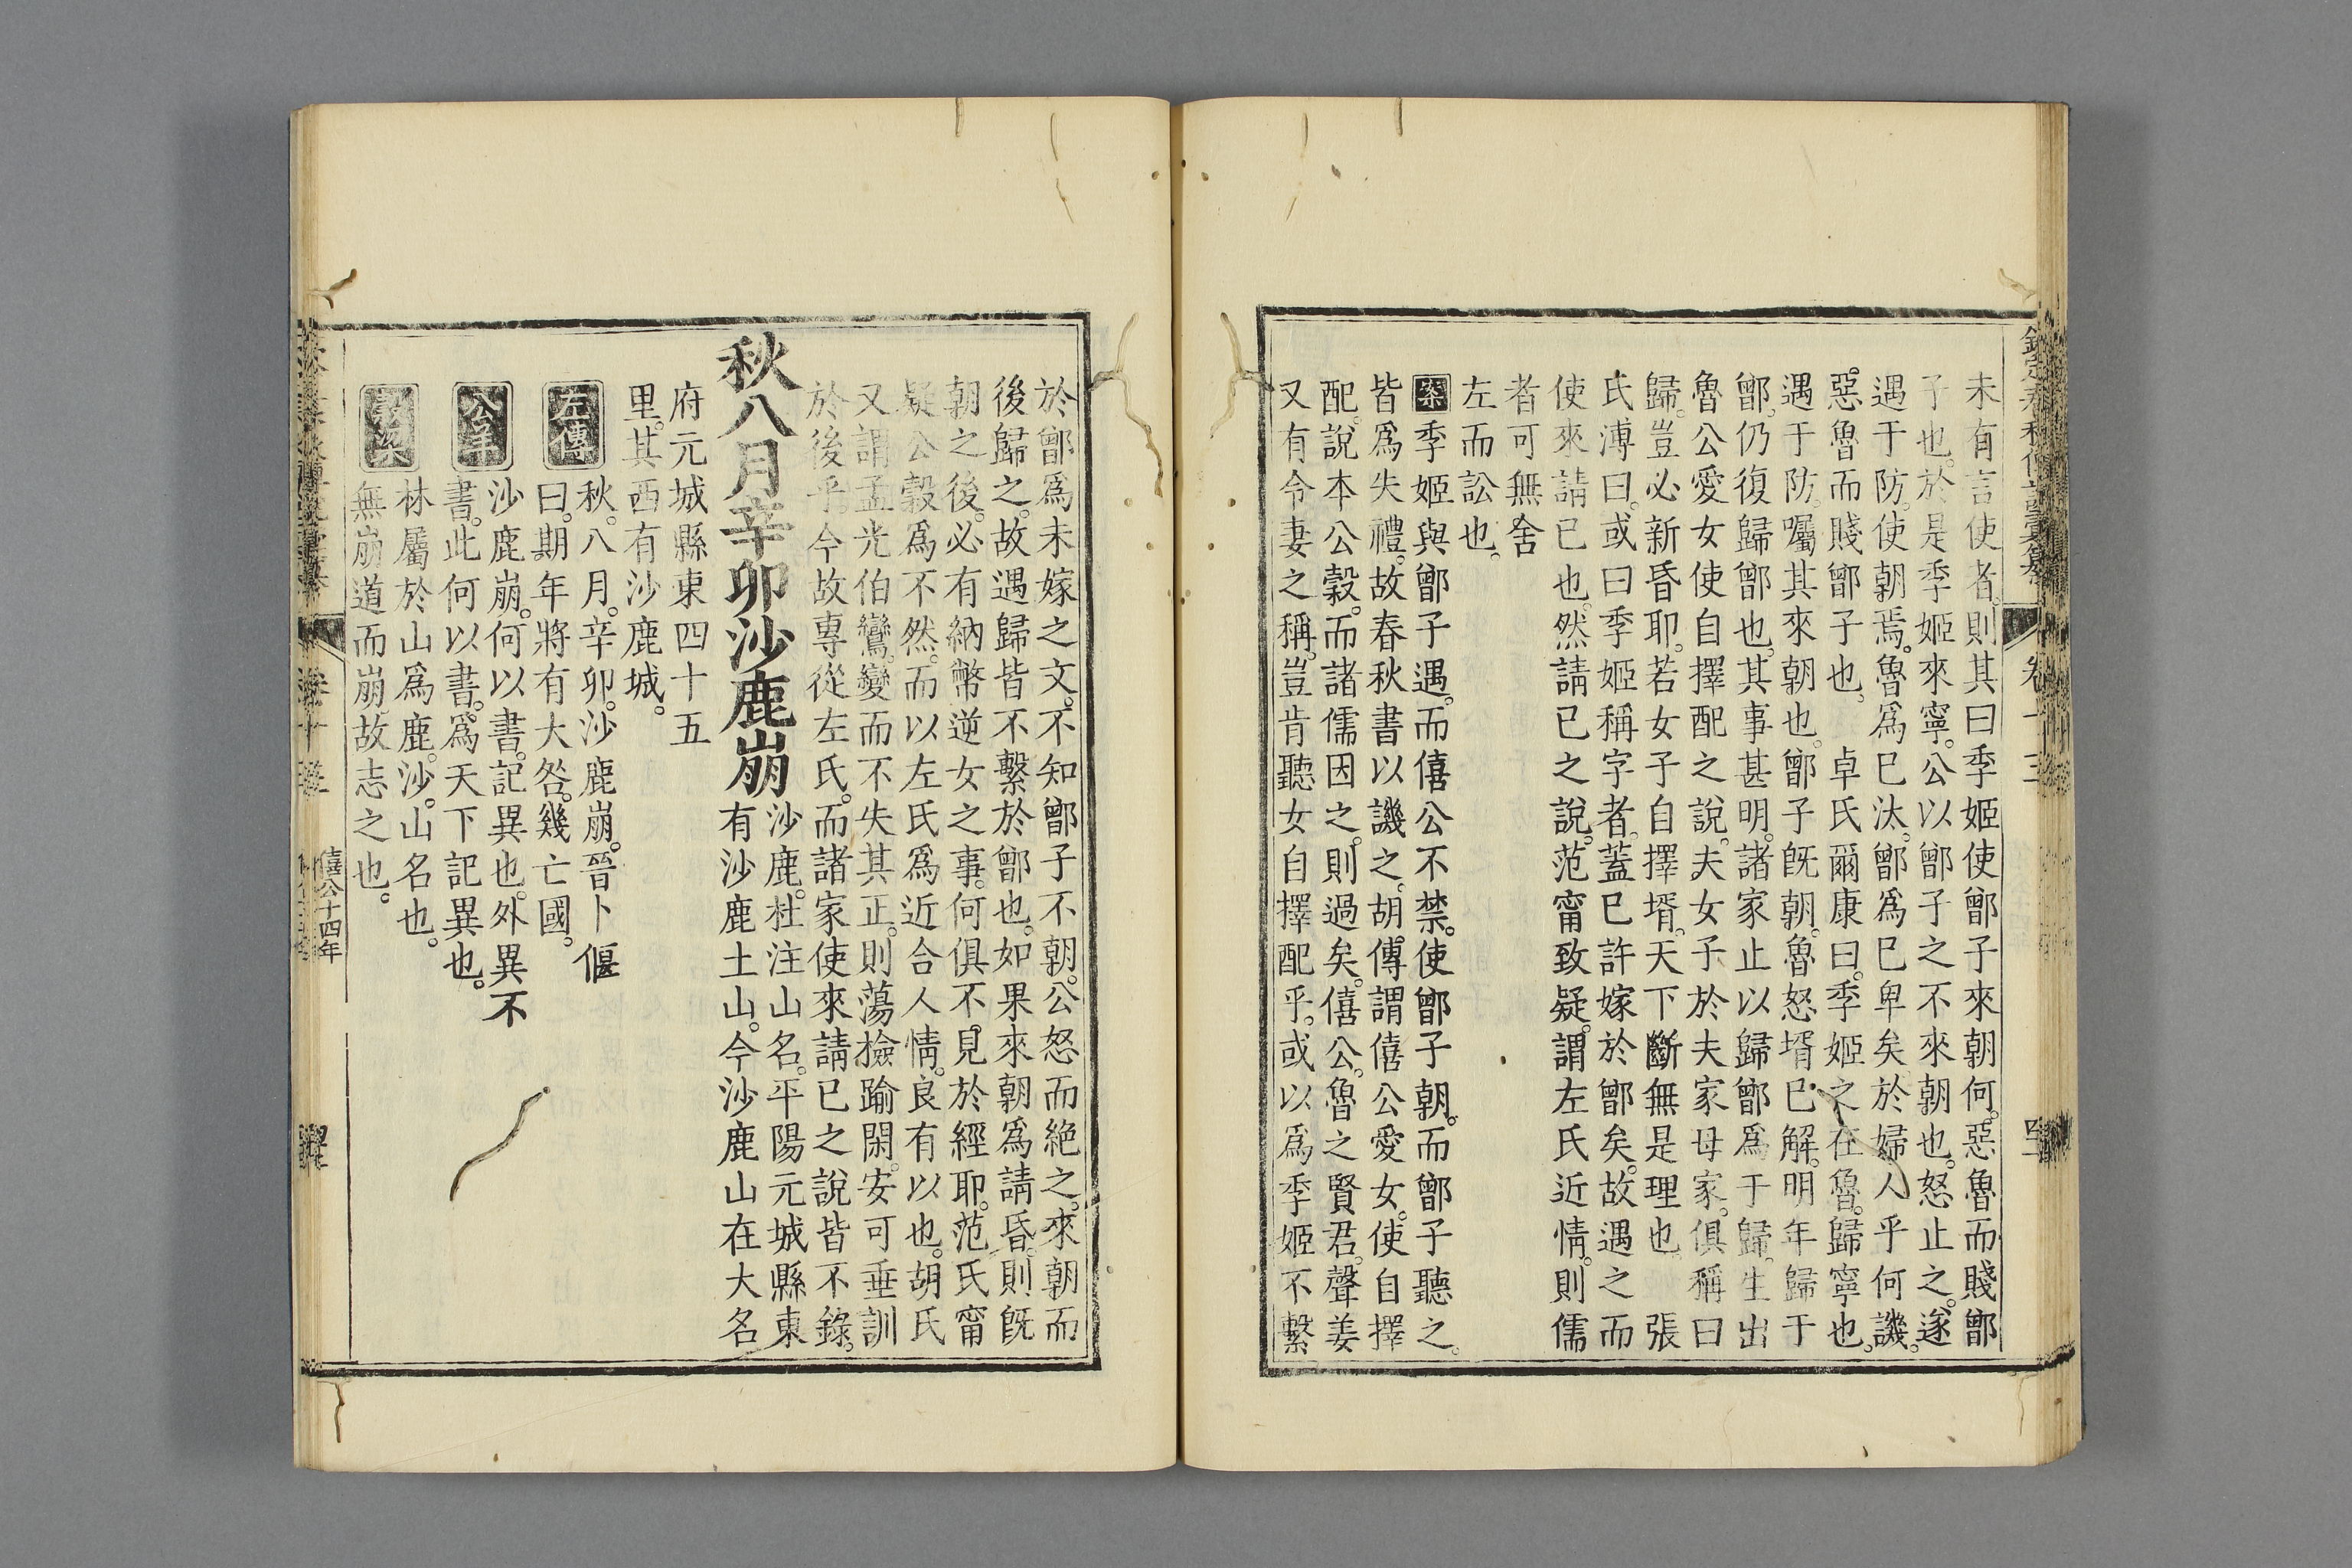 未有言使者。則其曰季姬使鄫子來朝何。惡魯而賤鄫
子也。於是季姬來寧。公以鄫子之不來朝也。怒止之。遂
遇于防。使朝焉。魯爲已汰。鄫爲已卑矣。於婦人乎何譏。
惡魯而賤鄫子也。 卓氏爾康曰。季姬之在魯。歸寧也。
遇于防。囑其來朝也。鄫子旣朝。魯怒壻已解。明年歸于
鄫。仍復歸鄫也。其事甚明。諸家止以歸鄫爲于歸。生出
魯公愛女使自擇配之說。夫女子於夫家母家。俱稱曰
歸。豈必新昏耶。若女子自擇壻。天下斷無是理也。 張
氏溥曰。或曰季姬稱字者。蓋已許嫁於鄫矣。故遇之而
使來請已也。然請已之說。范甯致疑。謂左氏近情。則儒
者可無舍
左而訟也。
案季姬與鄫子遇。而僖公不禁。使鄫子朝。而鄫子聽之。
皆爲失禮。故春秋書以譏之。胡傳謂僖公愛女。使自擇
配。說本公穀。而諸儒因之。則過矣。僖公。魯之賢君。聲姜
又有令妻之稱。豈肯聽女自擇配乎。或以爲季姬不繫
於鄫爲未嫁之文。不知鄫子不朝。公怒而絕之。來朝而
後歸之。故遇歸皆不繫於鄫也。如果來朝爲請昏。則旣
朝之後。必有納幣逆女之事。何俱不見於經耶。范氏甯
疑公穀爲不然。而以左氏爲近合人情。良有以也。胡氏
又謂孟光伯鸞。變而不失其正。則蕩檢踰閑。安可垂訓
於後乎。今故專從左氏。而諸家使來請已之說皆不錄。
秋八月辛卯沙鹿崩
沙鹿。杜注山名。平陽元城縣東
有沙鹿土山。今沙鹿山在大名
府元城縣東四十五
里。其西有沙鹿城。
左傳
秋。八月。辛卯。沙鹿崩。晉卜偃
曰。期年將有大咎。幾亡國。
公羊
沙鹿崩。何以書。記異也。外異不
書。此何以書。爲天下記異也。
穀梁
林屬於山爲鹿。沙。山名也。
無崩道而崩。故志之也。
僖公十四年